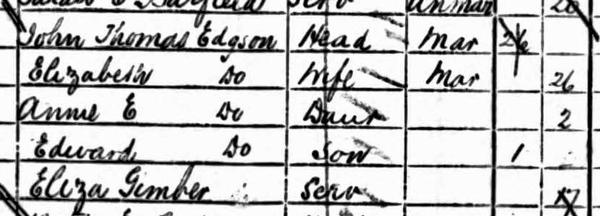 Serv Unmar 20
John Thomas Edgson Head Mar 26
Elizabeth Do Wife Mar 26
Annie E Do Daur 2
Edward Do Son 1
Eliza Gimber Serv 17